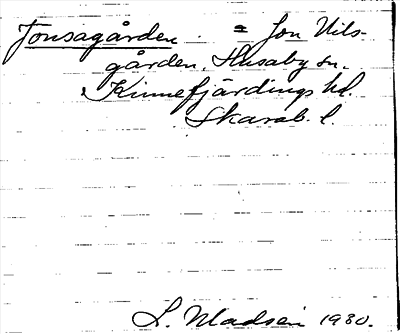 Jonsagården. = Jon Nils-
gården. Husaby sn.
Kinnefjärdings hd.
Skarab. l.
L. Madsén 1930.